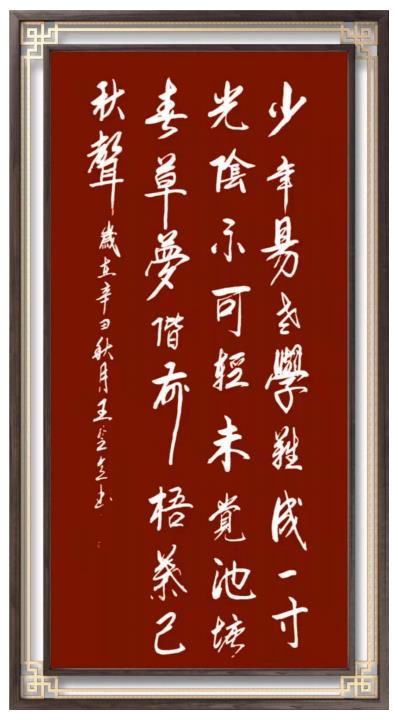 少年易老學難成一寸
光陰不可輕未覺池塘
春草夢偕前梧葉已
秋聲
歲在辛丑秋月王立書